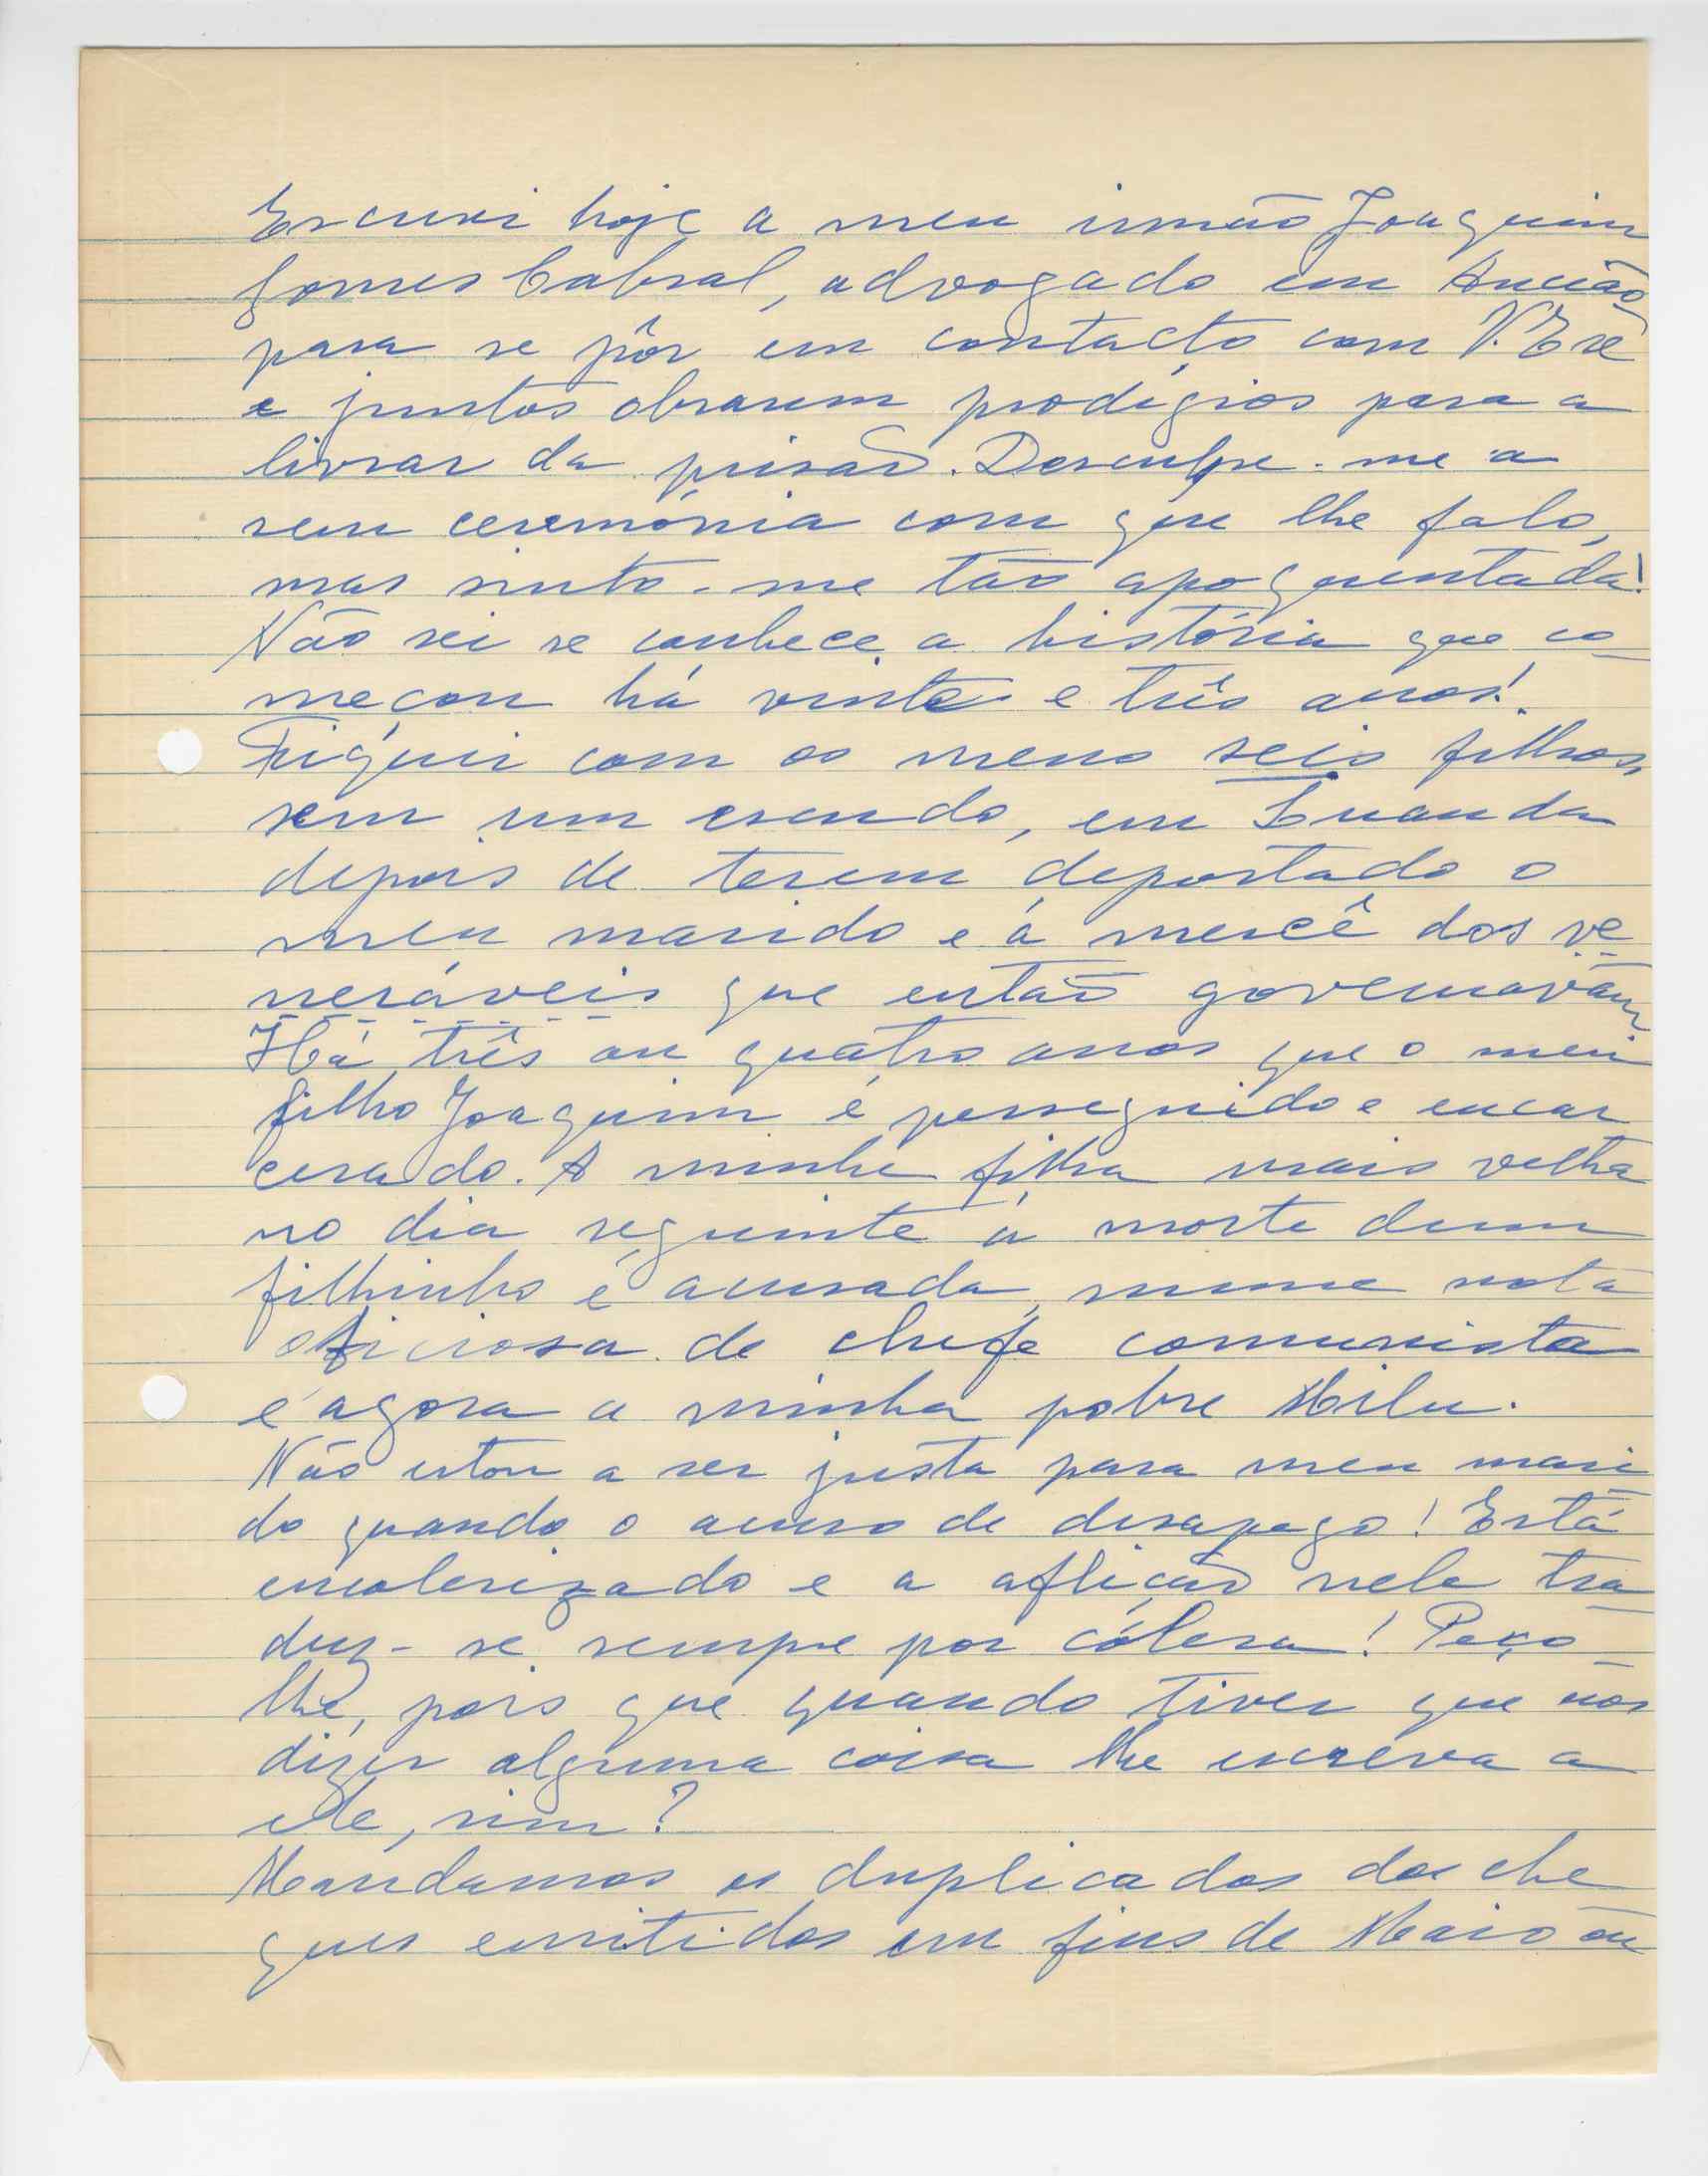 Escrevi hoje a meu irmão Joaquim
Gomes Cabral, advogado em Ancião
para se pôr em contacto com V. Exª
e juntos obrarem prodígios para a
livrar da prisão. Desculpe-me a
sem cerimónia com que lhe falo,
mas sinto-me tão apoquentada!
Não sei se conhece a história que co
meçou há vinte e três anos!
Fiquei com os meus seis filhos,
sem um escudo, em Luanda
depois de terem deportado o
meu marido e à mercê dos ve
neráveis que então governavam
Há três ou quatro anos que o meu
filho Joaquim é perseguido e encar
cerado. A minha filha mais velha
no dia seguinte à morte dum
filhinho é acusada, numa nota
oficiosa de chefe comunista
e agora a minha pobre Milu.
Não estou a ser justa para meu mari
do quando o acuso de desapego! Está
encolerizado e a aflição nele tra
duz-se sempre por cólera! Peço
lhe, pois que quando tiver que nos
dizer alguma coisa lhe escreva a
ele, sim?
Mandamos os duplicados dos che
ques emitidos em fins de Maio ou